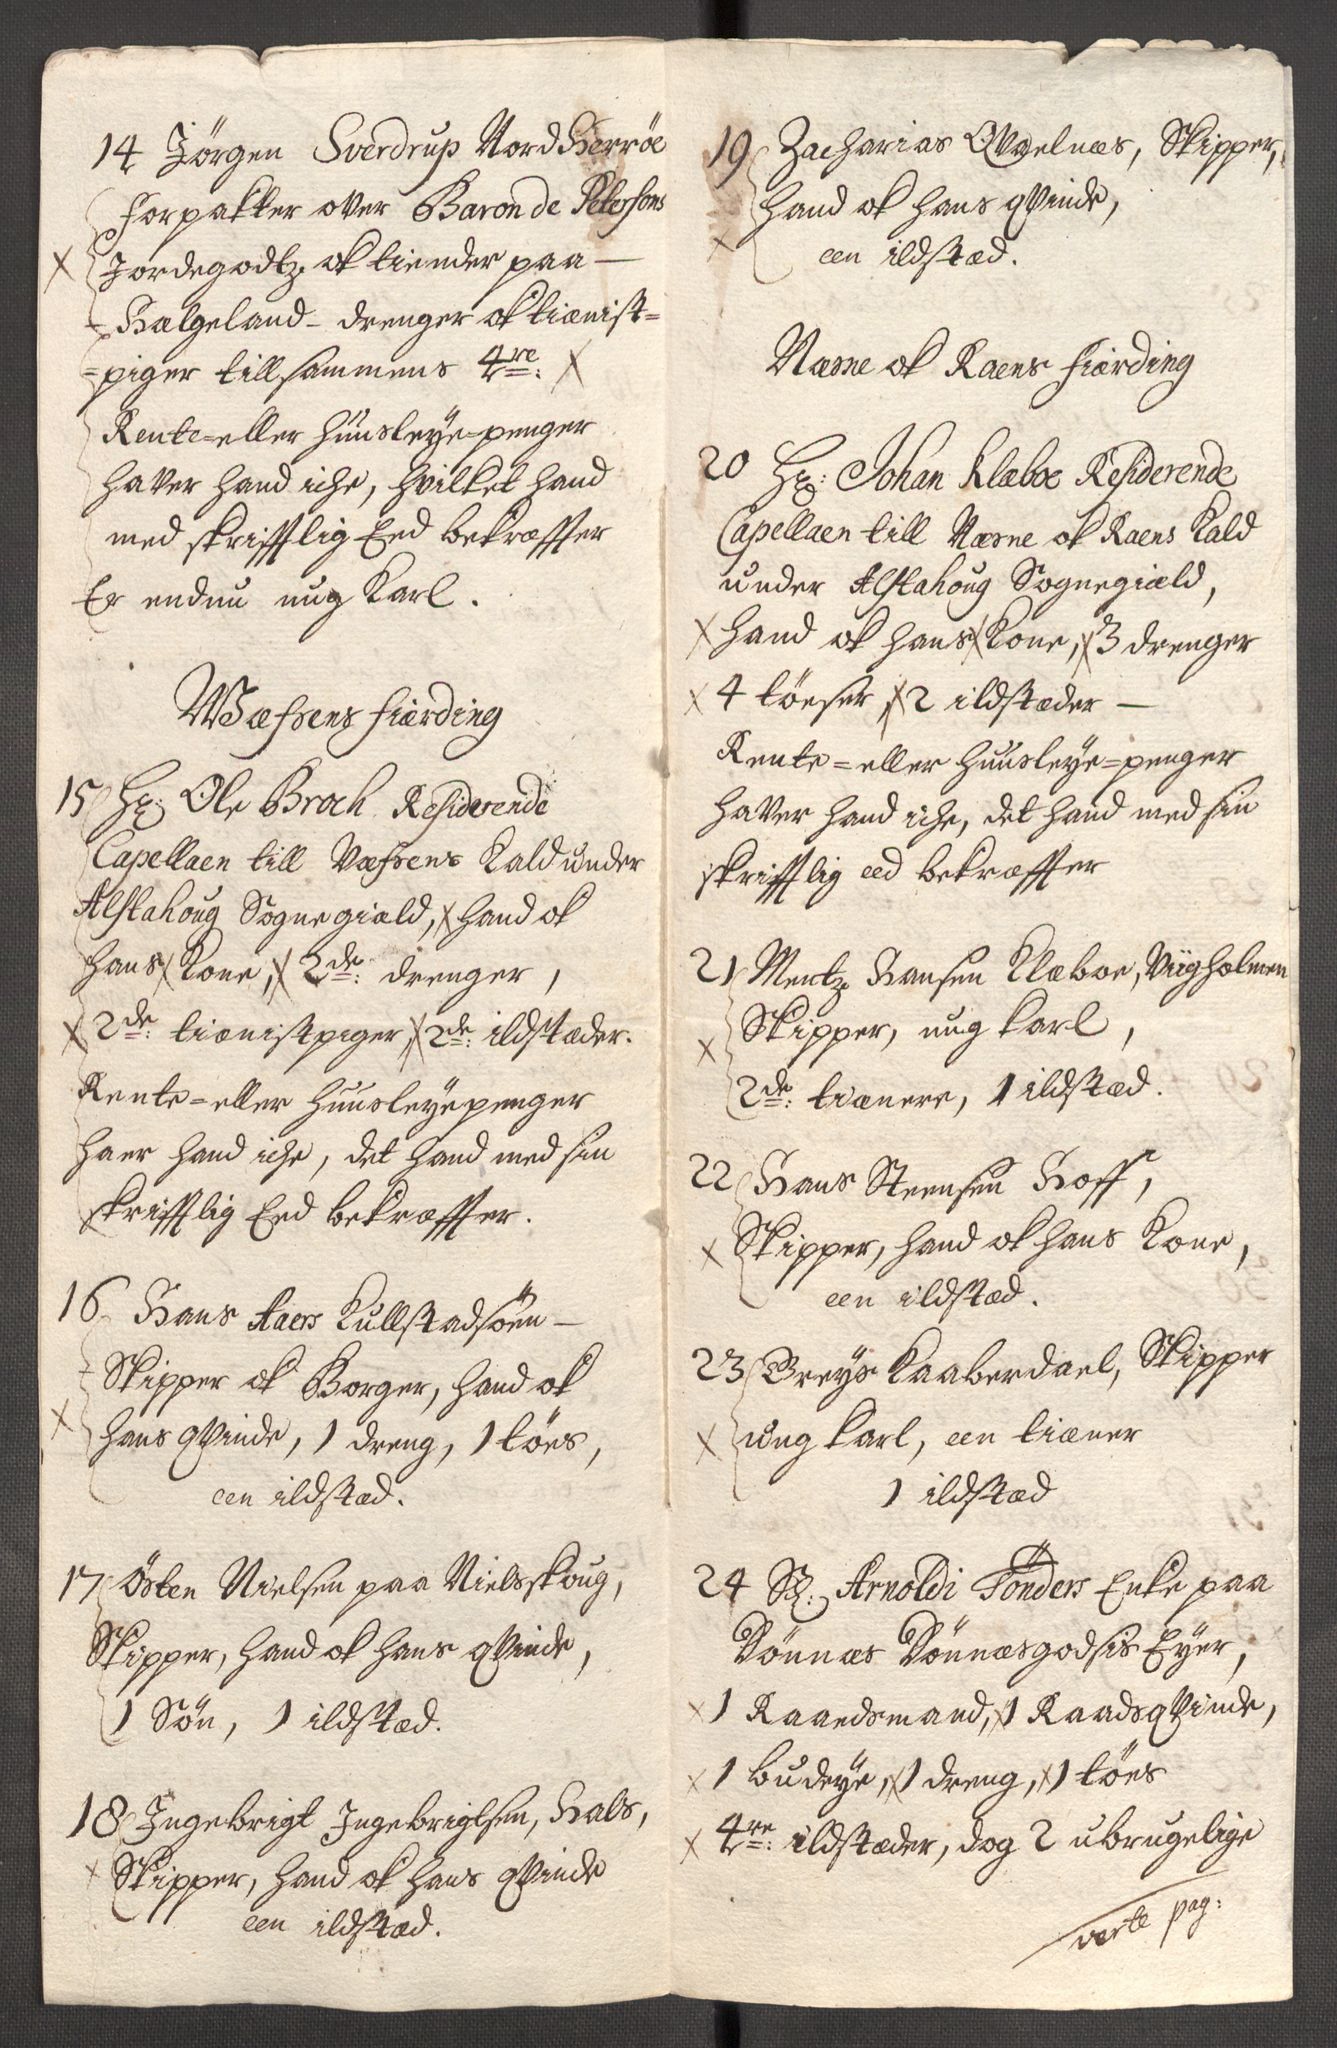 14 Jörgen Sverdrup Nord Herröe
forpakter over Baron de Petersons
Jordegodtz ok tiender paa
Hælgeland - drenger ok tiænist=
=piger tillsammens 4re:
Rente=eller huusleye=penger
haver hand iche, hvilket hand
med skrifftlig Eed bekræffter
Er endnu ung Karl.
Wæfsens fiærding
15 Hr: Ole Broch Residerende
Capellaen till Væfsens Kald under
Alstahoug Sognegiæld, hand ok
hans Kone, 2de: drenger,
2de: tiænistpiger, 2de: ildstæder.
Rente=eller huusleyepenger
haer hand iche, det hand med sin
skrifftlig Eed bekræffter.
16 Hans Aaers Kullstadsöen
Skipper ok Borger, hand ok
hans qvinde, 1 dreng, 1 töes,
een ildstæd.
17 Östen Nielsen paa Nielsskoug,
Skipper, hand ok hans qvinde,
1 Sön, 1 ildstæd.
18 Ingebrigt Ingebrigtsen, Hals,
Skipper, hand ok hans qvinde
een ildstæd.
19 Zacharias Qvælnæs, Skipper,
hand ok hans qvinde,
een ildstæd.
Næsne ok Raens fiærding
20 Hr: Johan Klæboe Residerende
Capellaen till Næsne ok Raens Kald
under Alstahoug Sognegiæld,
hand ok hans Kone, 3 drenger
4 töeser, 2 ildstæder
Rente=eller huusleye=penger
haver hand iche, det hand med sin
skrifftlig eed bekræffter
21 Mentz Hansen Klæboe, Viigholmen
Skipper, ung karl,
2de: tiænere, 1 ildstæd.
22 Hans Steensen Hoff,
Skipper, hand ok hans Kone,
een ildstæd.
23 Greys Kaaberdael, Skipper
ung karl, een tiæner
1 ildstæd
24 Sl. Arnoldi Tönders Enke paa
Dönnæs Dönnæsgodsis Eyer,
1 Raandsmand, 1 Raadsqvinde,
1 budeye, 1 dreng, 1 töes
4re: ildstæder, dog 2 ubrugelige
verte pag: